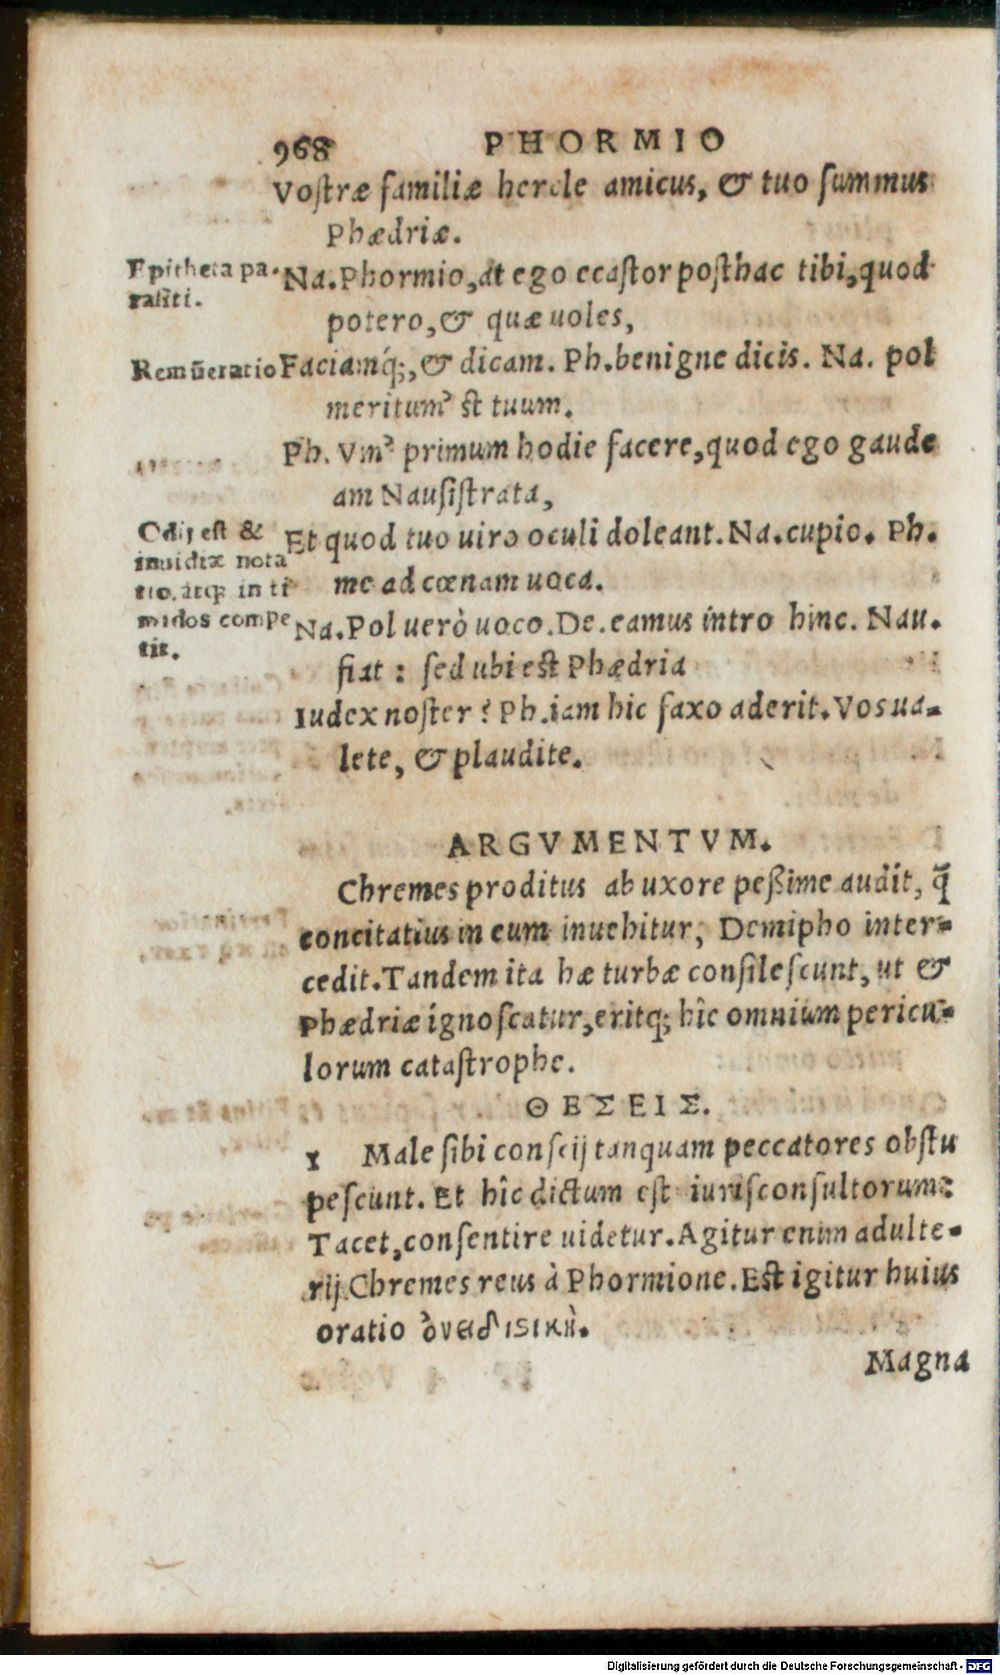 968 PHORMIO
Vostræ familiæ hercle amicus, & tuo summus
Phædriæ.
Epitheta pa-
rasiti.
Na. Phormio, at ego ecastor posthac tibi, quod
potero, & quæ uoles,
Remũeratio
Faciamq́;, & dicam. Ph. benigne dicis. Na. pol
meritumʾ st tuum.
Ph. Vinʾ primum hodie facere, quod ego gaude
am Nausistrata,
Odij est &
inuidiæ nota
tio, atq; in ti
midos compe
tit.
Et quod tuo uiro oculi doleant. Na. cupio. Ph.
me ad cœnam uoca.
Na. Pol uerò uoco. De. eamus intro hinc. Nau.
fiat : sed ubi est Phædria
Iudex noster? Ph. iam hic faxo aderit. Vos ua-
lete, & plaudite.
ARGVMENTVM.
Chremes proditus ab uxore peßime audit, q̃
concitatius in eum inuehitur, Demipho inter-
cedit. Tandem ita hæ turbæ consilescunt, ut &
Phædriæ ignoscatur, eritq; hîc omnium pericu-
lorum catastrophe.
ΘΕΣΕΙΣ.
1 Male sibi conscij tanquam peccatores obstu
pescunt. Et hîc dictum est iurisconsultorum:
Tacet, consentire uidetur. Agitur enim adulte-
rij Chremes reus à Phormione. Est igitur huius
oratio ὀνειδιστικὴ.
Magna
Digitalisierung gefördert durch die Deutsche Forschungsgemeinschaft - DFG